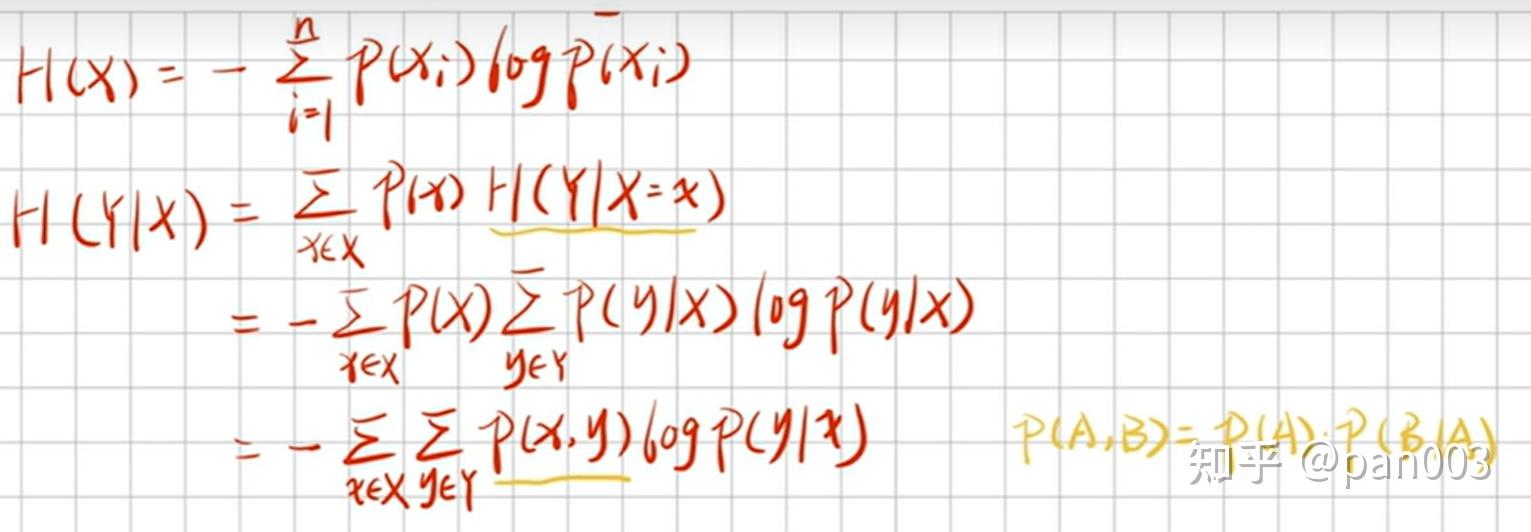 H(X) = - \sum_{i=1}^{n} P(x_i) log P(x_i)
H(Y|X) = \sum_{x∈X} P(x) H(Y|X=x)
= - \sum_{x∈X} P(x) \sum_{y∈Y} P(y|x) log P(y|x)
= - \sum_{x∈X} \sum_{y∈Y} P(x,y) log P(y|x) P(A,B) = P(A)·P(B|A)
知乎 @pan003